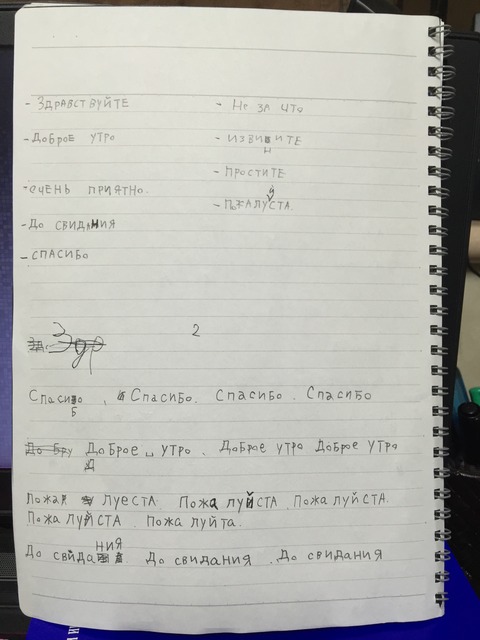 - ЗДРАВСТВУЙТЕ
- Доброе утро
- ОЧЕНЬ ПРИЯТНО.
- До СВИДАНИЯ
- СПАСИБО
- Не за что
- ИЗВИНИТЕ
- ПРОСТИТЕ
- ПОЖАЛУЙСТА.
Здр
2
Спасибо, Спасибо. Спасибо. Спасибо
Доброе утро. Доброе утро Доброе утро
Пожал луеста Пожалуйста. Пожалуйста.
Пожалуйста. Пожалуйта.
До свидания. До свидания. До свидания